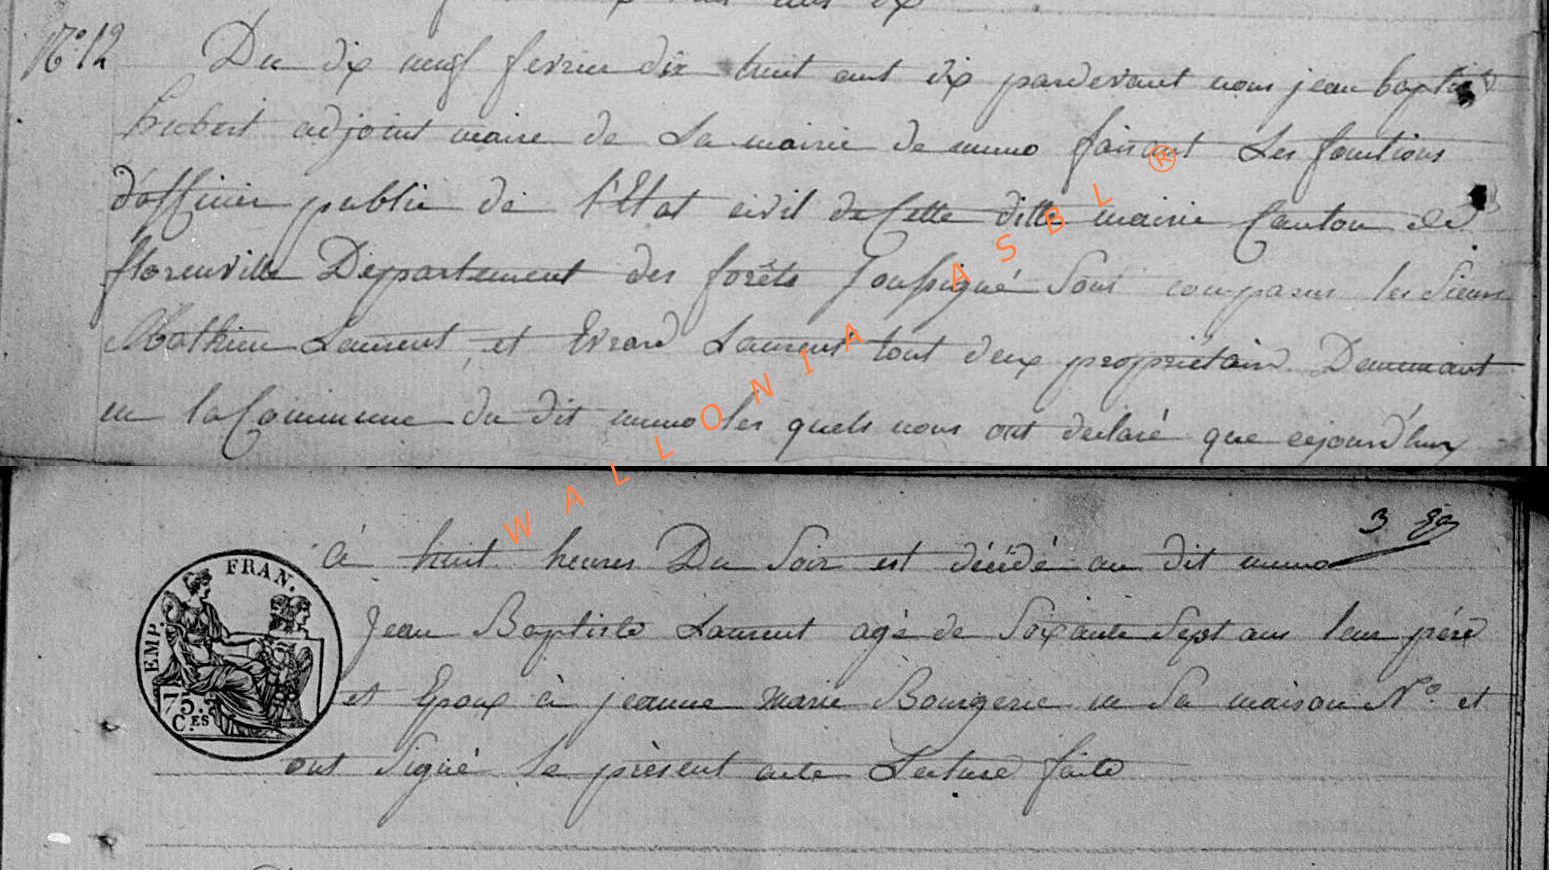 N° 12
Du dix neuf fevrier dix huit cent dix pardevant nous jean baptist
hubert adjoint maire de La mairie de muno faisant Les fonctions
d'officier public de l'Etat civil de Cette ditte mairie Canton de
florenville Departement des forêts Soussigné Sont comparus les Sieurs
Mathieu Laurent, et Evrard Laurent tout deux proprietaire Demeurant
en la Commune du dit muno les quels nous ont declaré que cejourd'huy
3
à huit heures Du Soir est décédé au dit muno
Jean Baptiste Laurent agé de Soixante Sept ans leur pére
et Epoux à jeanne marie Bourgerie en Sa maison N° et
ont Signé le présent acte Lecture faite
EMP. FRAN.
75. C.ES
WALLONIA ASBL ®